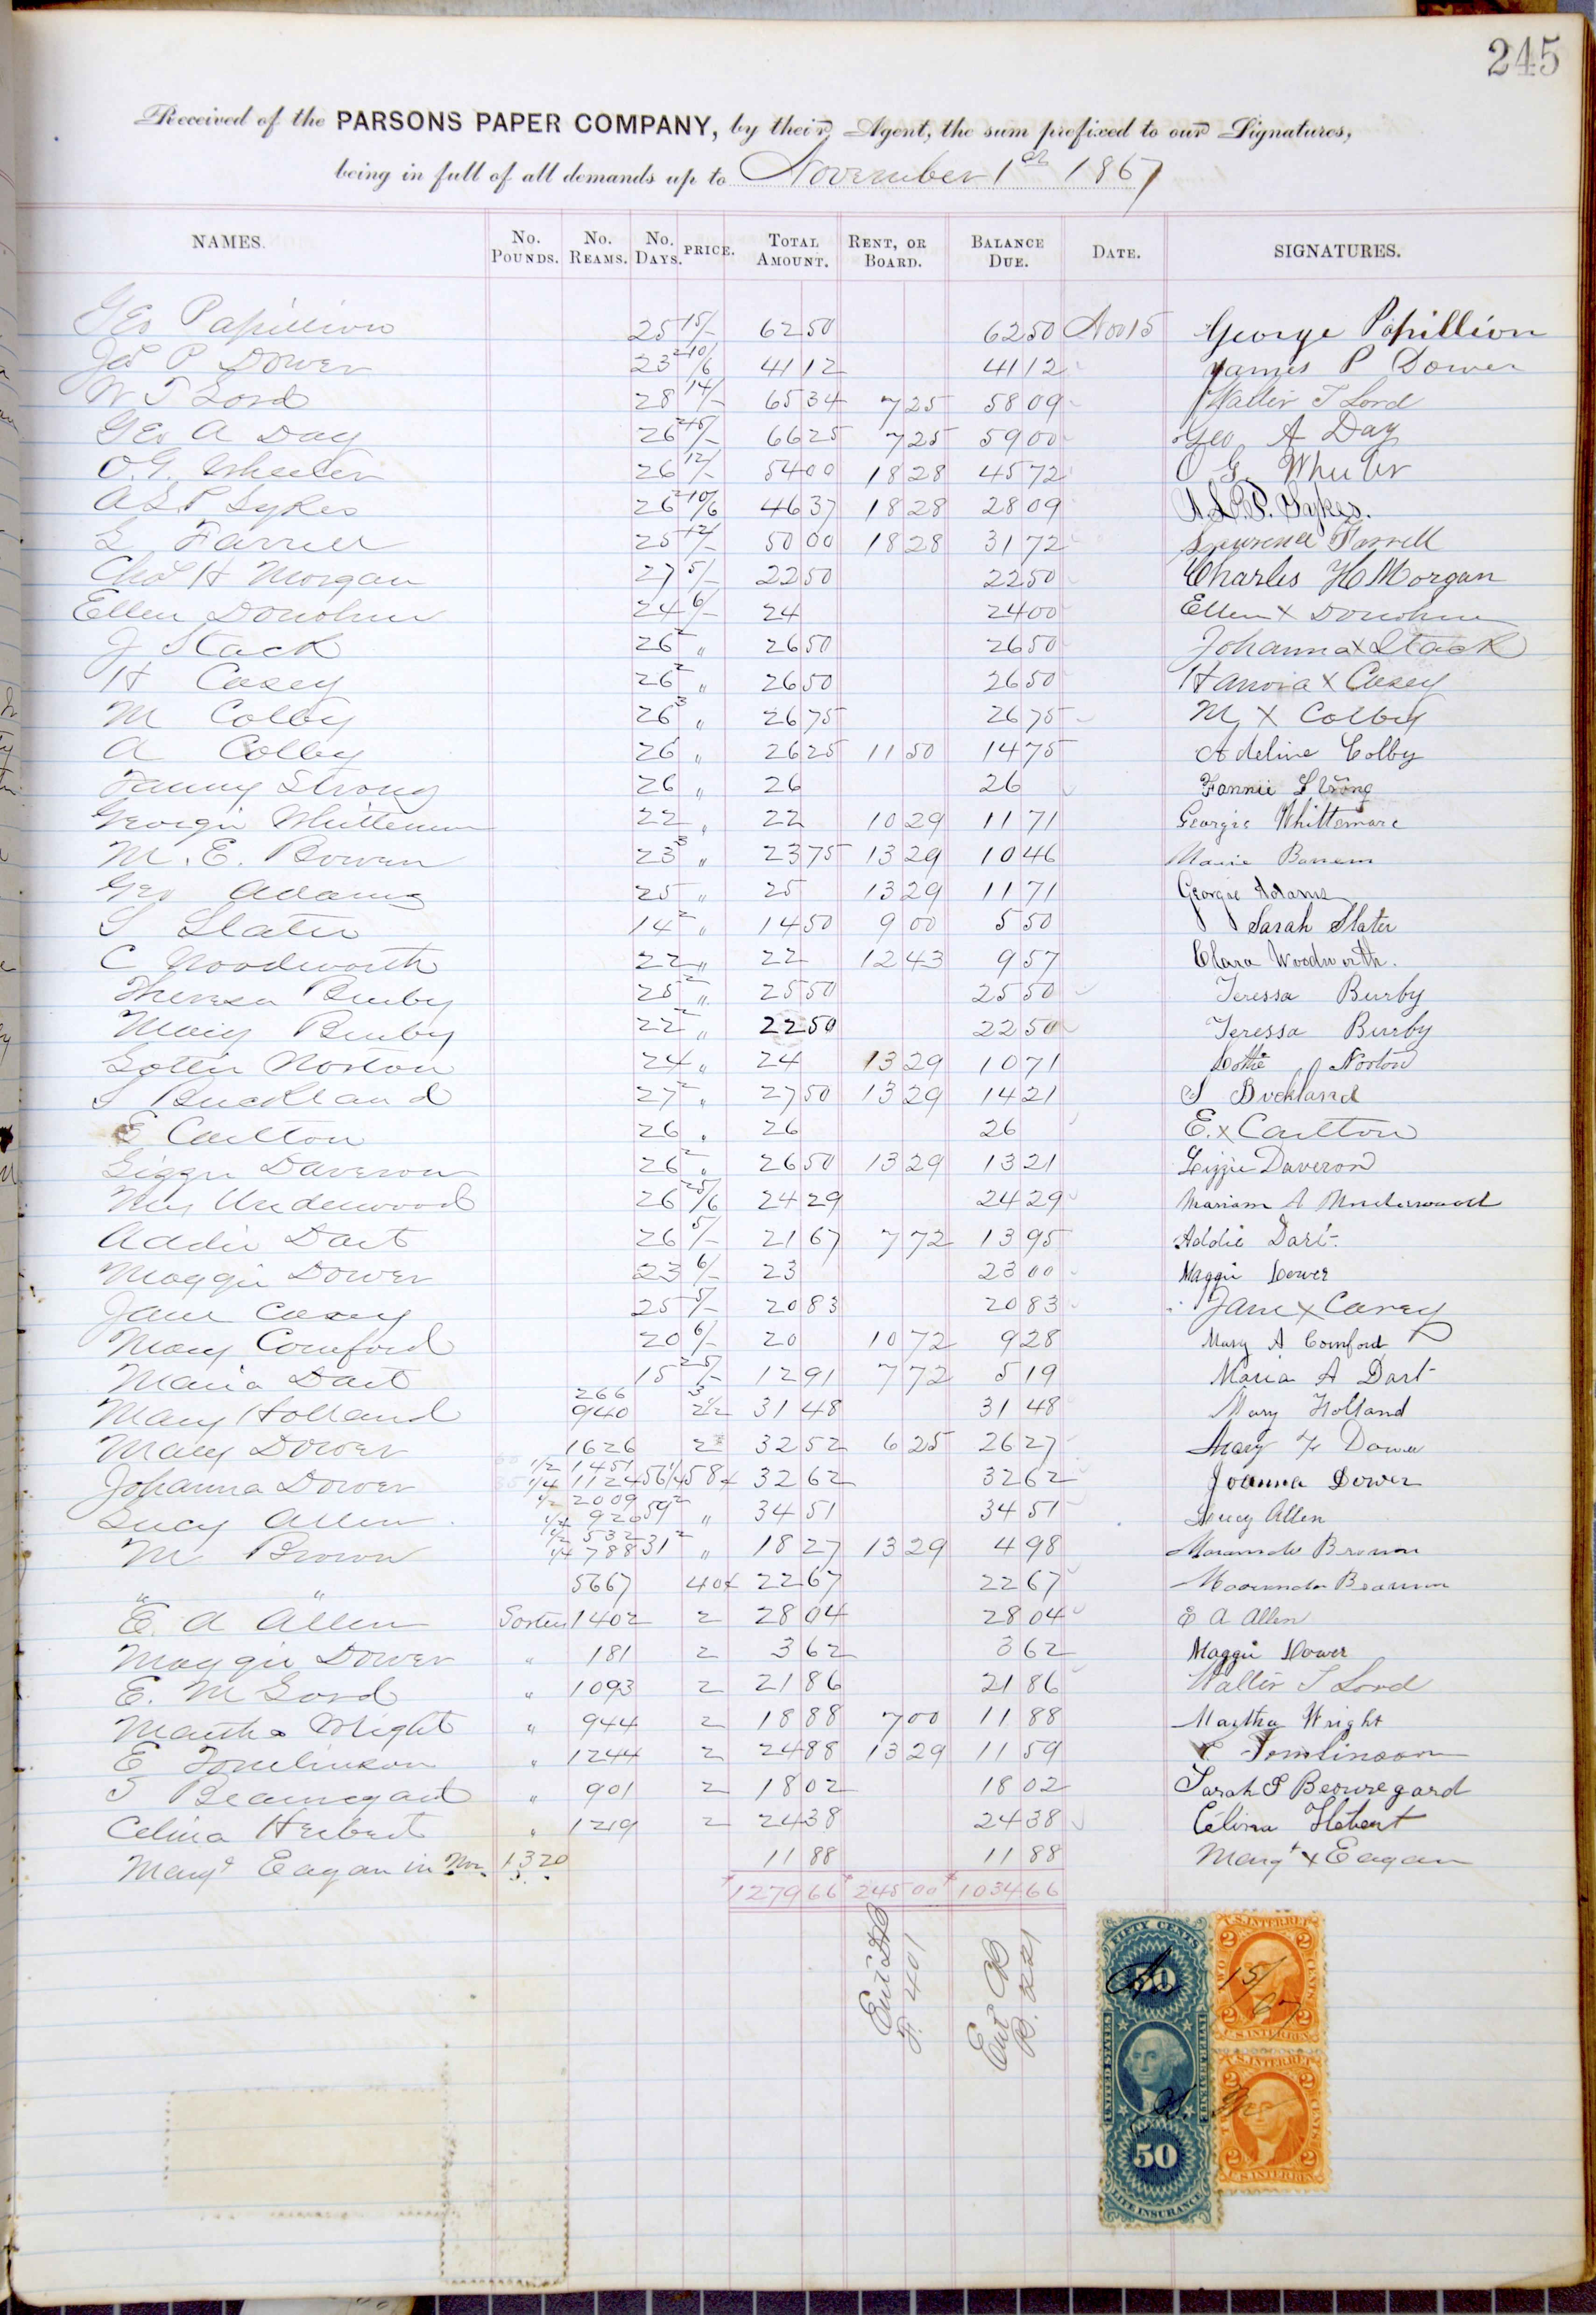 245
Received of the PARSONS PAPER COMPANY, by their Agent, the sum prefixed to our Signatures,
being in full of all demands up to November 1st 1867
NAMES. No. POUNDS. No. REAMS. No. DAYS. PRICE. TOTAL AMOUNT. RENT, OR BOARD. BALANCE DUE. DATE. SIGNATURES.
Geo Papillion 25 15/- 62 50 62 50 Nov 15 George Papillion
Jas P Dower 23 2 10/6 41 12 41 12 James P Dower
W T Lord 28 14/- 65 34 7 25 58 09 Walter T Lord
Geo A Day 26 2 15/- 66 25 7 25 59 00 Geo A Day
O.G. Wheeler 26 12/- 54 00 18 28 45 72 O G. Wheeler
A S P Sykes 26 2 10/6 46 37 18 28 28 09 A.S.P. Sykes.
L Farrell 25 12/- 50 00 18 28 31 72 Lawrence Farrell
Chas H Morgan 27 5/- 22 50 22 50 Charles H Morgan
Ellen Donohue 24 6/- 24 24 00 Ellen X Donohue
J Stack 26 2 " 26 50 26 50 Johanna X Stack
H Casey 26 2 " 26 50 26 50 Hanora X Casey
M Colby 26 3 " 26 75 26 75 M X Colby
A Colby 26 " 26 25 11 50 14 75 Adeline Colby
Fanny Strong 26 " 26 26 Fannie Strong
Georgie Whittemore 22 " 22 10 29 11 71 Georgie Whittemore
M. E. Bowen 23 3 " 23 75 13 29 10 46 Marie
Geo Adams 25 " 25 13 29 11 71 Georgie Adams
S Slater 14 2 " 14 50 9 00 5 50 Sarah Slater
C Woodworth 22 " 22 12 43 9 57 Clara Woodworth.
Theresa Burby 25 2 " 25 50 25 50 Teressa Burby
Mary Burby 22 2 " 22 50 22 50 Teressa Burby
Lottie Norton 24 " 24 13 29 10 71 Lottie Norton
S Buckland 27 2 " 27 50 13 29 14 21 S Buckland
E Carlton 26 " 26 26 E. X Carlton
Lizzie Daveron 26 2 " 26 50 13 29 13 21 Lizzie Daveron
Mrs Underwood 26 2 5/6 24 29 24 29 Mariam A Underwood
Addie Dart 26 5/- 21 67 7 72 13 95 Addie Dart
Maggie Dower 23 6/- 23 23 00 Maggie Dower
Jane Casey 25 5/- 20 83 20 83 Jane X Casey
Mary Comford 20 6/- 20 10 72 9 28 Mary A Comford
Maria Dart 15 2 5/- 12 91 7 72 5 19 Maria A Dart
266 3
Mary Holland 940 2 1/2 31 48 31 48 Mary Holland
Mary Dower 1626 2 32 52 6 25 26 27 Mary Dower
1/2 1451
Johanna Dower 1/4 1124 56 1/4 58¢ 32 62 32 62 Joanna Dower
1/2 2009
Lucy Allen 1/4 920 59 2 " 34 51 34 51 Lucy Allen
1/2 532
M Brown 1/4 788 31 2 " 18 27 13 29 4 98 Brown
" " 5667 40¢ 22 67 22 67
E. A Allen Sorters 1402 2 28 04 28 04 E A Allen
Maggie Dower " 181 2 3 62 3 62 Maggie Dower
E. M Lord " 1093 2 21 86 21 86 Walter T Lord
Martha Wright " 944 2 18 88 7 00 11 88 Martha Wright
E Tomlinson " 1244 2 24 88 13 29 11 59 E Tomlinson
S Beauregard " 901 2 18 02 18 02 Sarah S Beauregard
Celina Herbert " 1219 2 24 38 24 38 Celina Hebert
Margt Eagan in Nov. 1320 11 88 11 88 Margt X Eagan
1279 66 245 00 1034 66
Ent
F. 401
Ent CB
P. 221
FIFTY CENTS
50
UNITED STATES
INTER. REVENUE
50
LIFE INSURANCE
U.S. INTER. REV.
2 2
TWO CENTS
15/67
2 2
U.S. INTER. REV.
U.S. INTER. REV.
2 2
CENTS
2 2
U.S. INTER. REV.